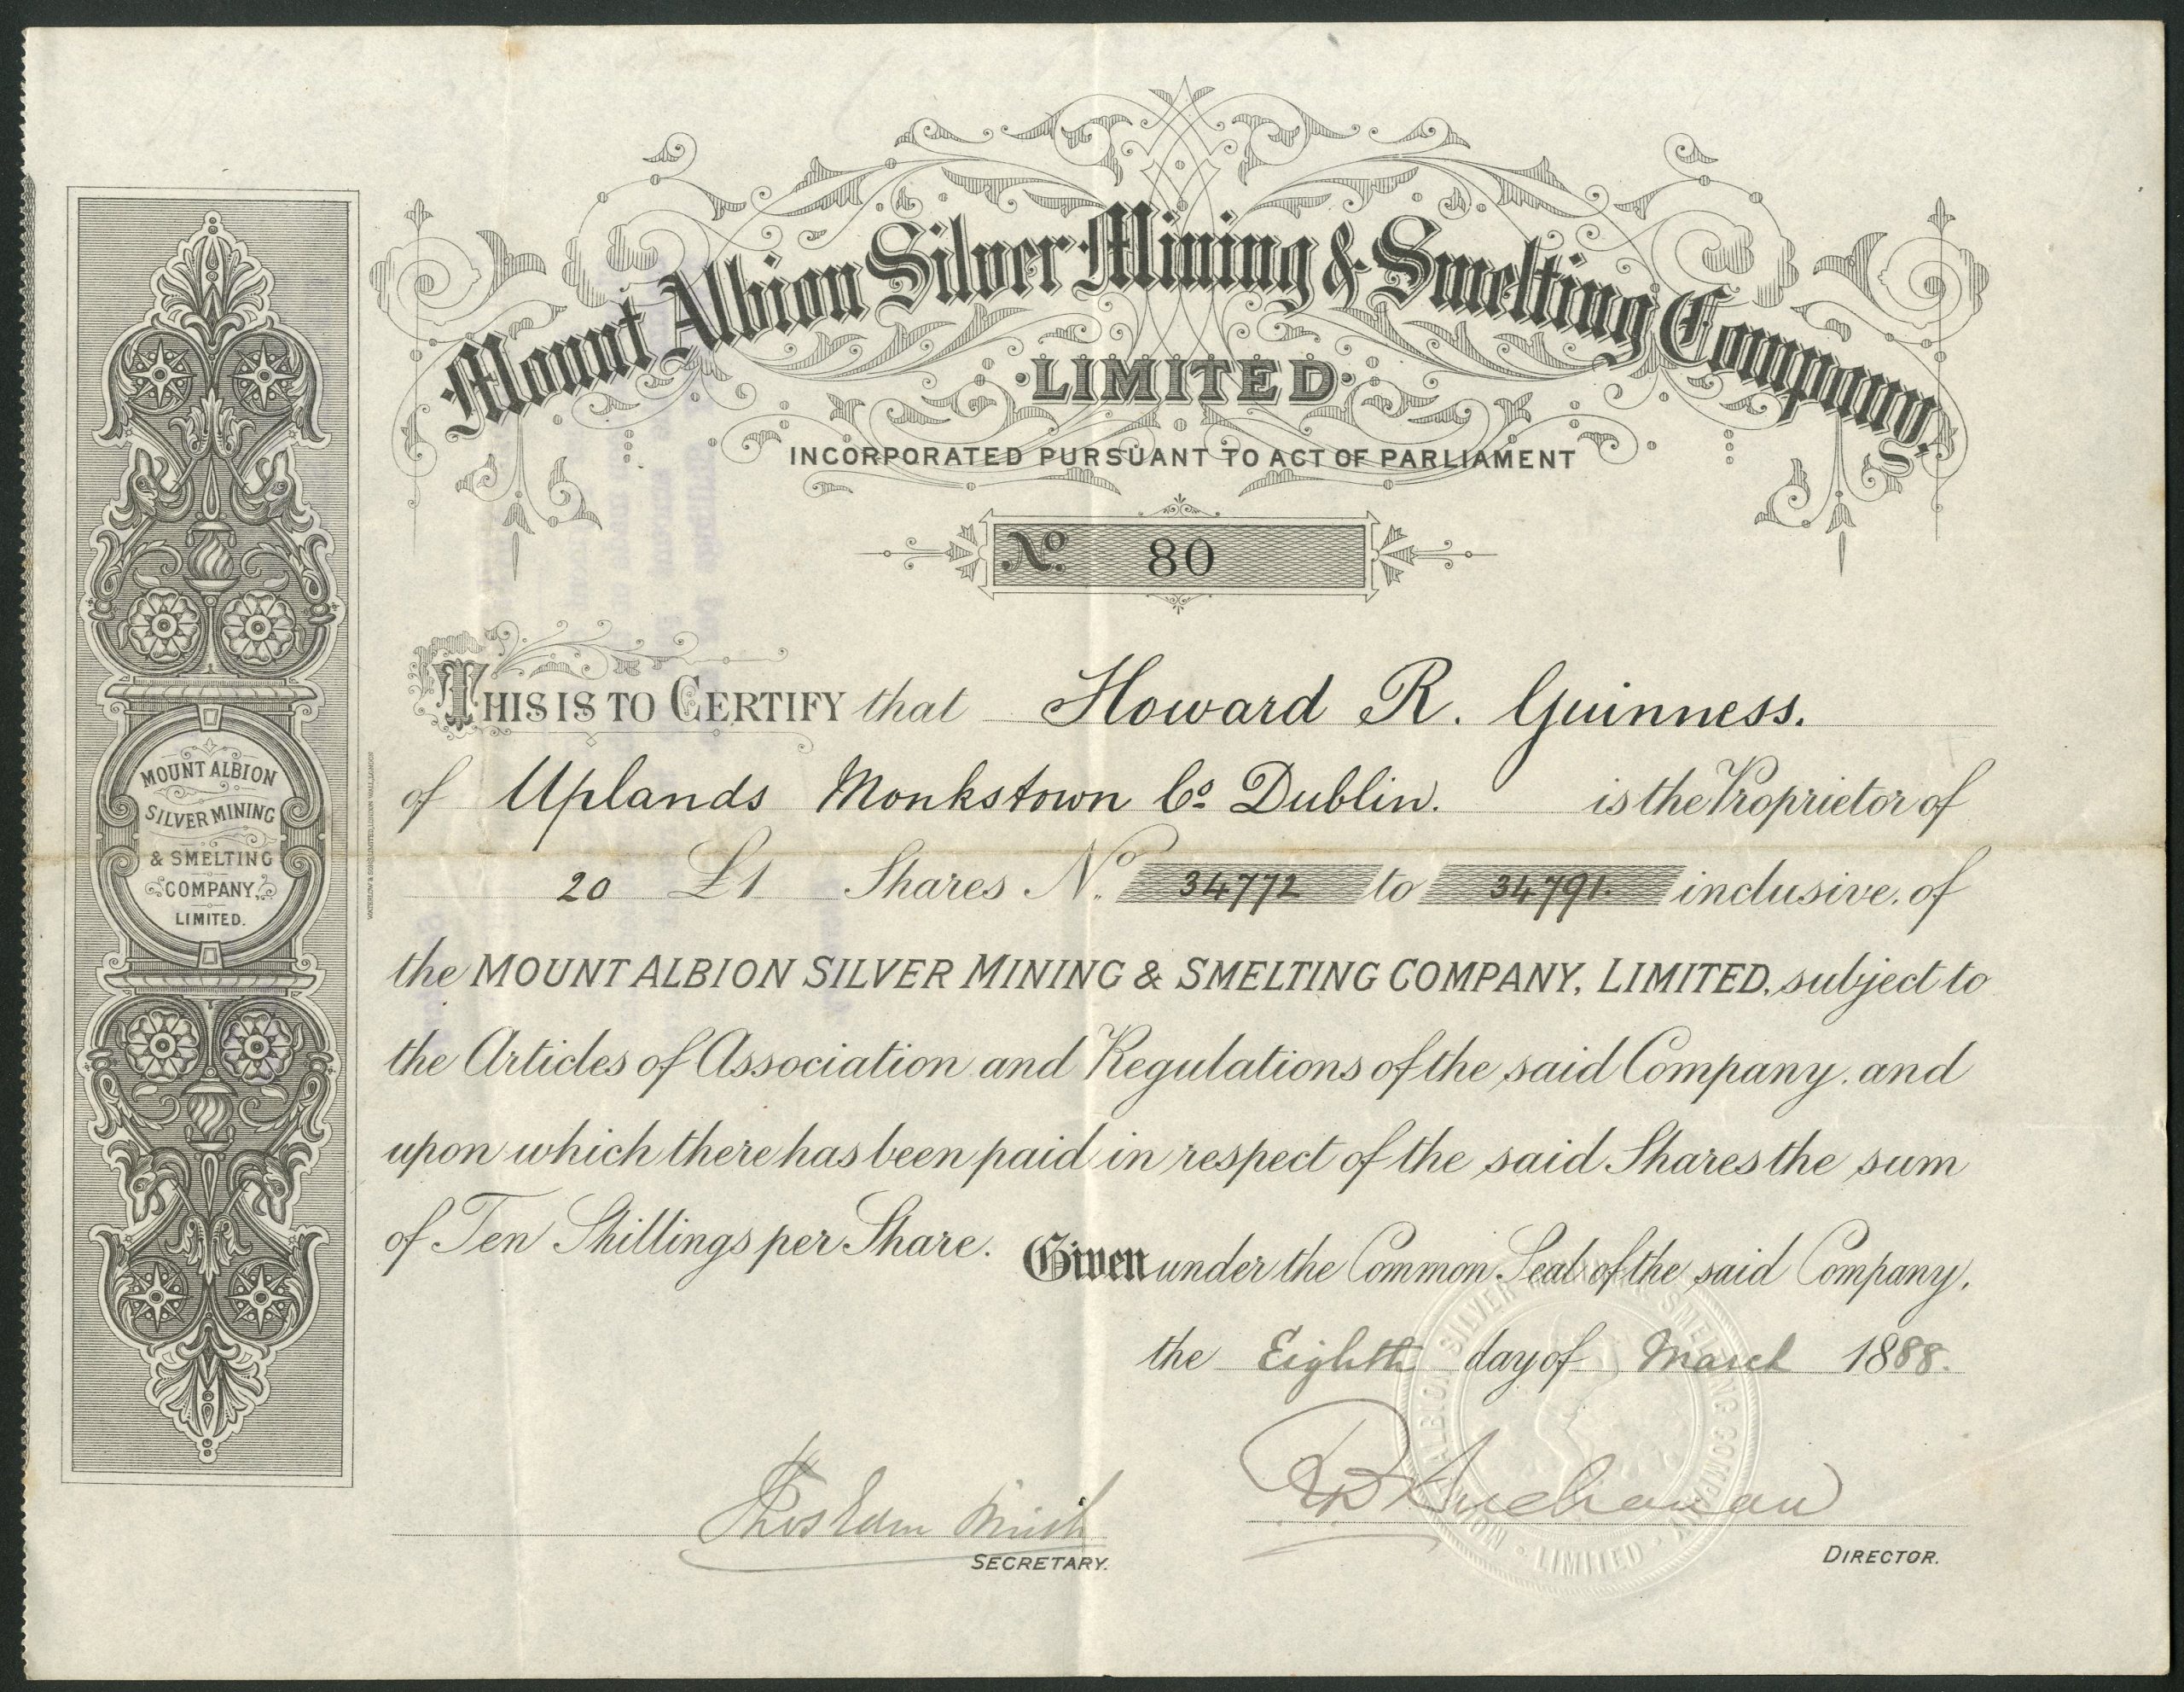 Mount Albion Silver Mining & Smelting Company,
LIMITED
INCORPORATED PURSUANT TO ACT OF PARLIAMENT
No. 80
THIS IS TO CERTIFY that Howard R. Guinness.
of Uplands Monkstown Co Dublin. is the Proprietor of
20 £1 Shares No. 34772 to 34791. inclusive, of
the MOUNT ALBION SILVER MINING & SMELTING COMPANY, LIMITED, subject to
the Articles of Association and Regulations of the said Company, and
upon which there has been paid in respect of the said Shares the sum
of Ten Shillings per Share.
Given under the Common Seal of the said Company,
the Eighth day of March 1888.
SECRETARY.
DIRECTOR.
MOUNT ALBION
SILVER MINING
& SMELTING
COMPANY,
LIMITED.
WATERLOW & SONS LIMITED, LONDON WALL, LONDON
MOUNT ALBION SILVER MINING & SMELTING COMPANY LIMITED